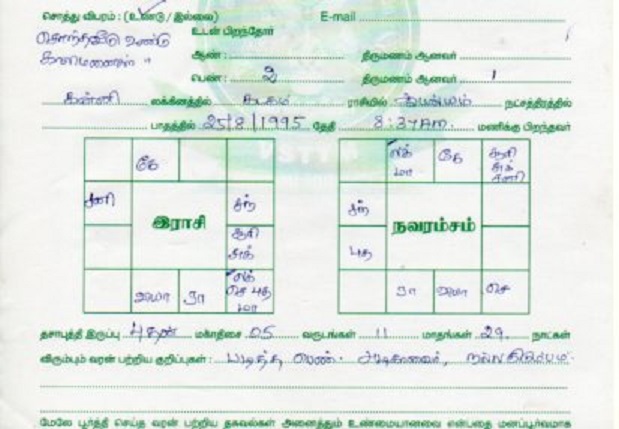 சொத்து விபரம் : (உண்டு / இல்லை) E-mail
சொந்தவீடு உண்டு உடன் பிறந்தோர்
காலிமனையும் " ஆண் : திருமணம் ஆனவர்
பெண் : 2 திருமணம் ஆனவர் 1
கன்னி லக்கினத்தில் கடகம் ராசியில் ஆயில்யம் நட்சத்திரத்தில்
பாதத்தில் 25/8/1995 தேதி 8:37 AM. மணிக்கு பிறந்தவர்
கே
சனி சந்
இராசி
சூரி
சுக்
குரு ரா செ புத
மா
லக் கே சூரி
மா சுக்
சனி
சந்
நவாம்சம்
புத
ரா குரு செ
தசாபுத்தி இருப்பு புதன் மகாதிசை 05 வருடங்கள் 11 மாதங்கள் 29 நாட்கள்
விரும்பும் வரன் பற்றிய குறிப்புகள் : படித்த பெண். நல்ல குடும்பம்
மேலே பூர்த்தி செய்த வரன் பற்றிய தகவல்கள் அனைத்தும் உண்மையானவை என்பதை மனப்பூர்வமாக